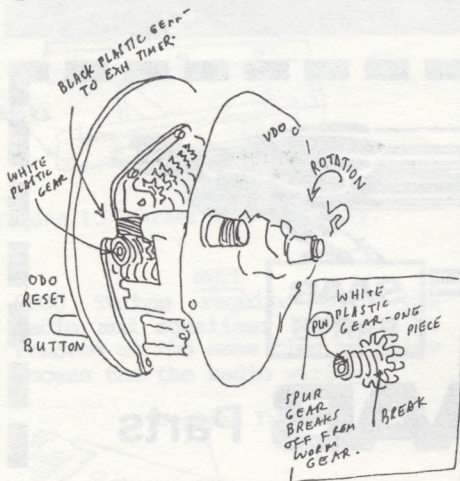 BLACK PLASTIC GEAR
TO EXH TIMER.
WHITE
PLASTIC
GEAR
ODO
RESET
BUTTON
VDO
ROTATION
WHITE
PLASTIC
GEAR-ONE
PIECE
PW
SPUR
GEAR
BREAKS
OFF FROM
WORM
GEAR.
BREAK
Parts